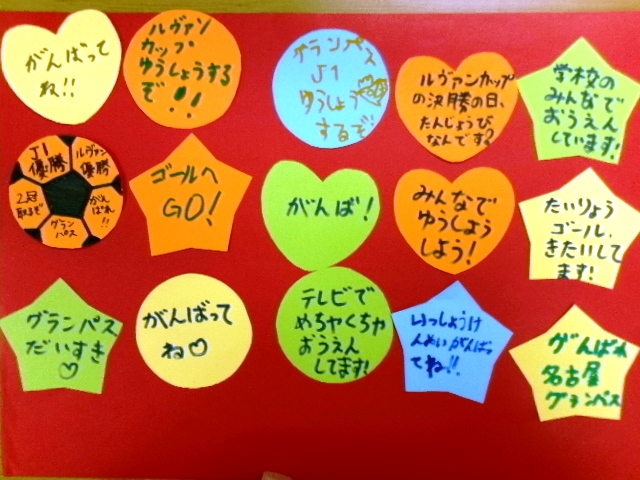 がんばって
ね!!
ルヴァン
カップ
ゆうしょうする
ぞ!!
グランパス
J1
ゆうしょう
するぞ!
ルヴァンカップ
の決勝の日、
たんじょうび
なんです?
学校の
みんなで
おうえん
しています!
J1
優勝
ルヴァン
優勝
2冠
取るぞ
がん
ばれ
!!
グラン
パス
ゴールへ
GO!
がんば!
みんなで
ゆうしょう
しよう!
たいりょう
ゴール、
きたいして
ます!
グランパス
だいすき
♡
がんばって
ね♡
テレビで
めちゃくちゃ
おうえん
してます!
いっしょうけ
んめいがんばっ
てね!!
がんばれ
名古屋
グランパス